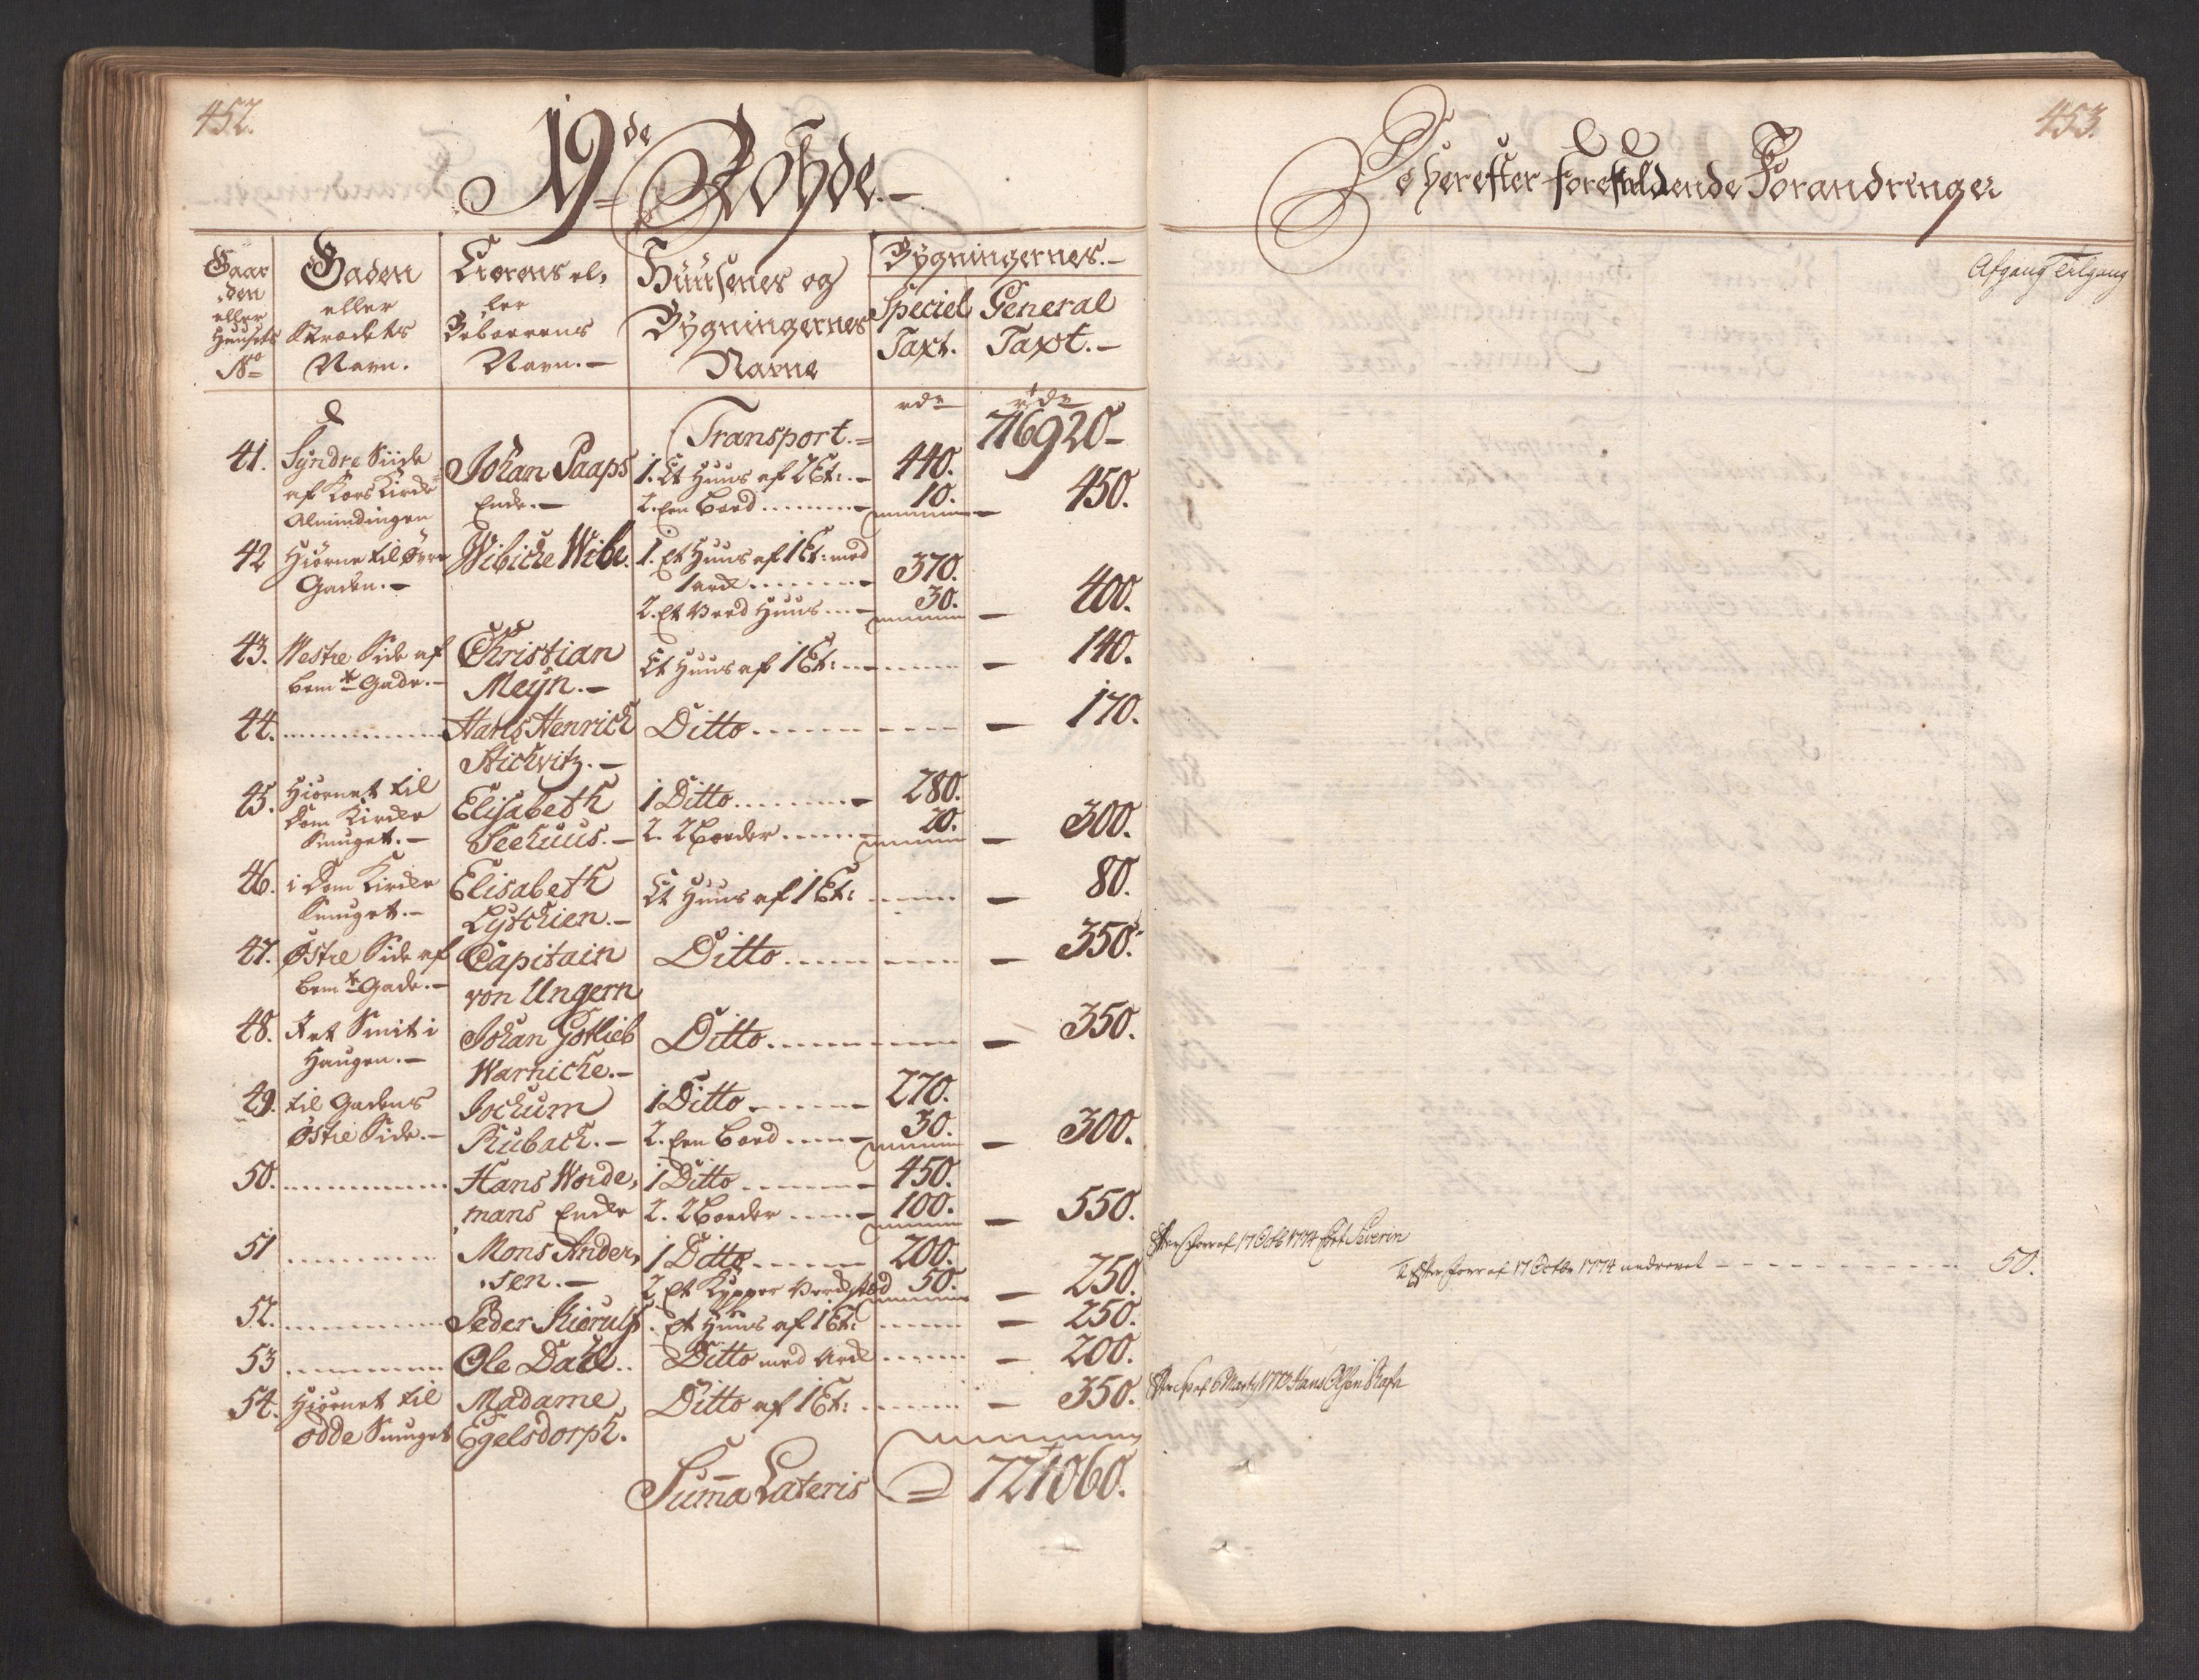 452.
19de Rohde.
Gaarden eller Huusets No
Gaden eller Strædets Navn.
Eierens eller Beboerens Navn.
Huusenes og Bygningernes Navne
Bygningernes.
Speciel Taxt.
General Taxt.
rdr
rdr
Transport. 716920
41. Syndre Siide af Kors Kirke Almindingen
Johan Paaps Enke.
1. Et Huus af 2 Et: 440.
2. Een Boed 10. 450.
42 Hiørne til Øvre Gaden.
Wibiche Wibe.
1. Et Huus af 1 Et: med Ark 370.
2. Et Boed Huus 30. 400.
43. Westre Side af bemte Gade.
Christian Meyn.
Et Huus af 1 Et: 140.
44. Hans Henrich Stichvitz.
Ditto 170.
45. Hiørnet til Dom Kirke Smuget.
Elisabeth Seehuus.
1 Ditto 280.
2. 2 Boeder 20. 300.
46. i Dom Kirke Smuget.
Elisabeth Lystchien.
Et Huus af 1 Et: 80.
47. Østre Side af bemte Gade.
Capitain von Ungern
Ditto 350.
48. Et Smit i Haugen.
Johan Gotlieb Warniche.
Ditto 350.
49. til Gadens Østre Side.
Jochum Rubach.
1 Ditto 270.
2. Een Boed 30. 300.
50. Hans Wordemans Enke
1 Ditto 450.
2. 2 Boeder 100. 550.
51 Mons Andersen.
1 Ditto 200.
2 Et Kypper Verksted 50. 250.
52. Peder Kierulf.
Et Huus af 1 Et: 250.
53 Ole Dahl.
Ditto med Ark 200.
54. Hiørnet til Odde Smuget
Madame Egelsdorph.
Ditto af 1 Et: 350.
Summa Lateris 721060.
453.
De herefter forefaldende Forandringer
Afgang Tilgang
Efter Forr af 17 Octb 1774 Cort Severin
2 Efter Forr af 17 Octbr 1774 nedrevet 50.
af 6 Marty 1773 Hans Olsen